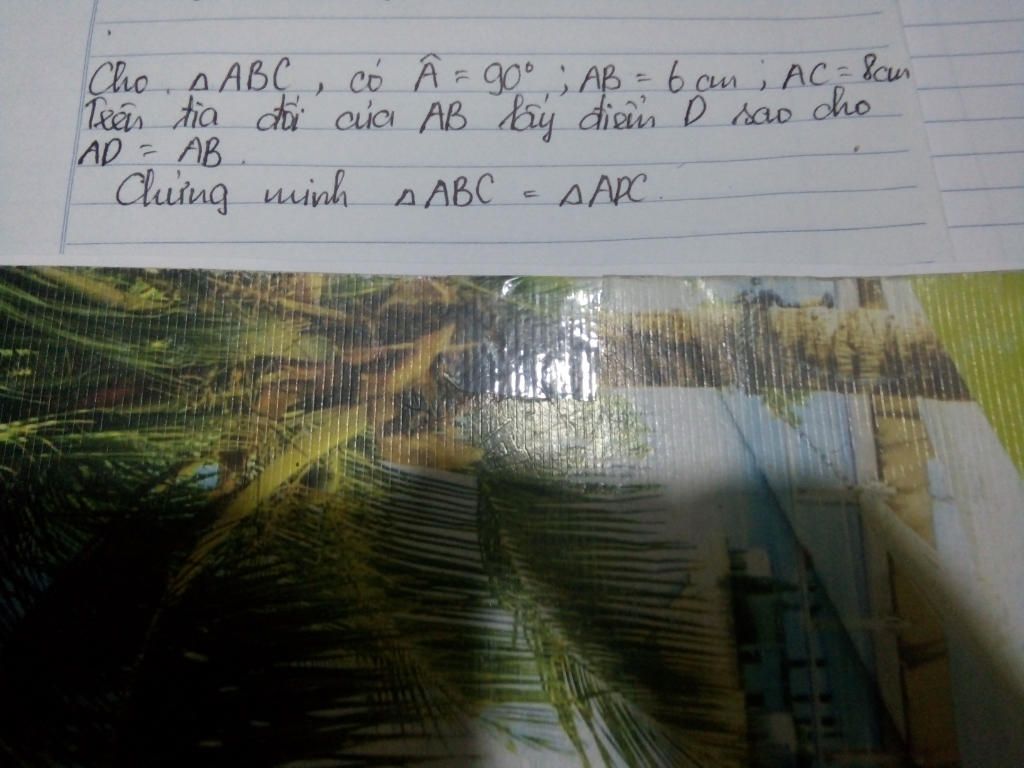 Cho. △ABC, có Â = 90°; AB = 6 cm; AC = 8cm
Trên tia đối của AB lấy điểm D sao cho
AD = AB.
Chứng minh △ABC = △ADC.